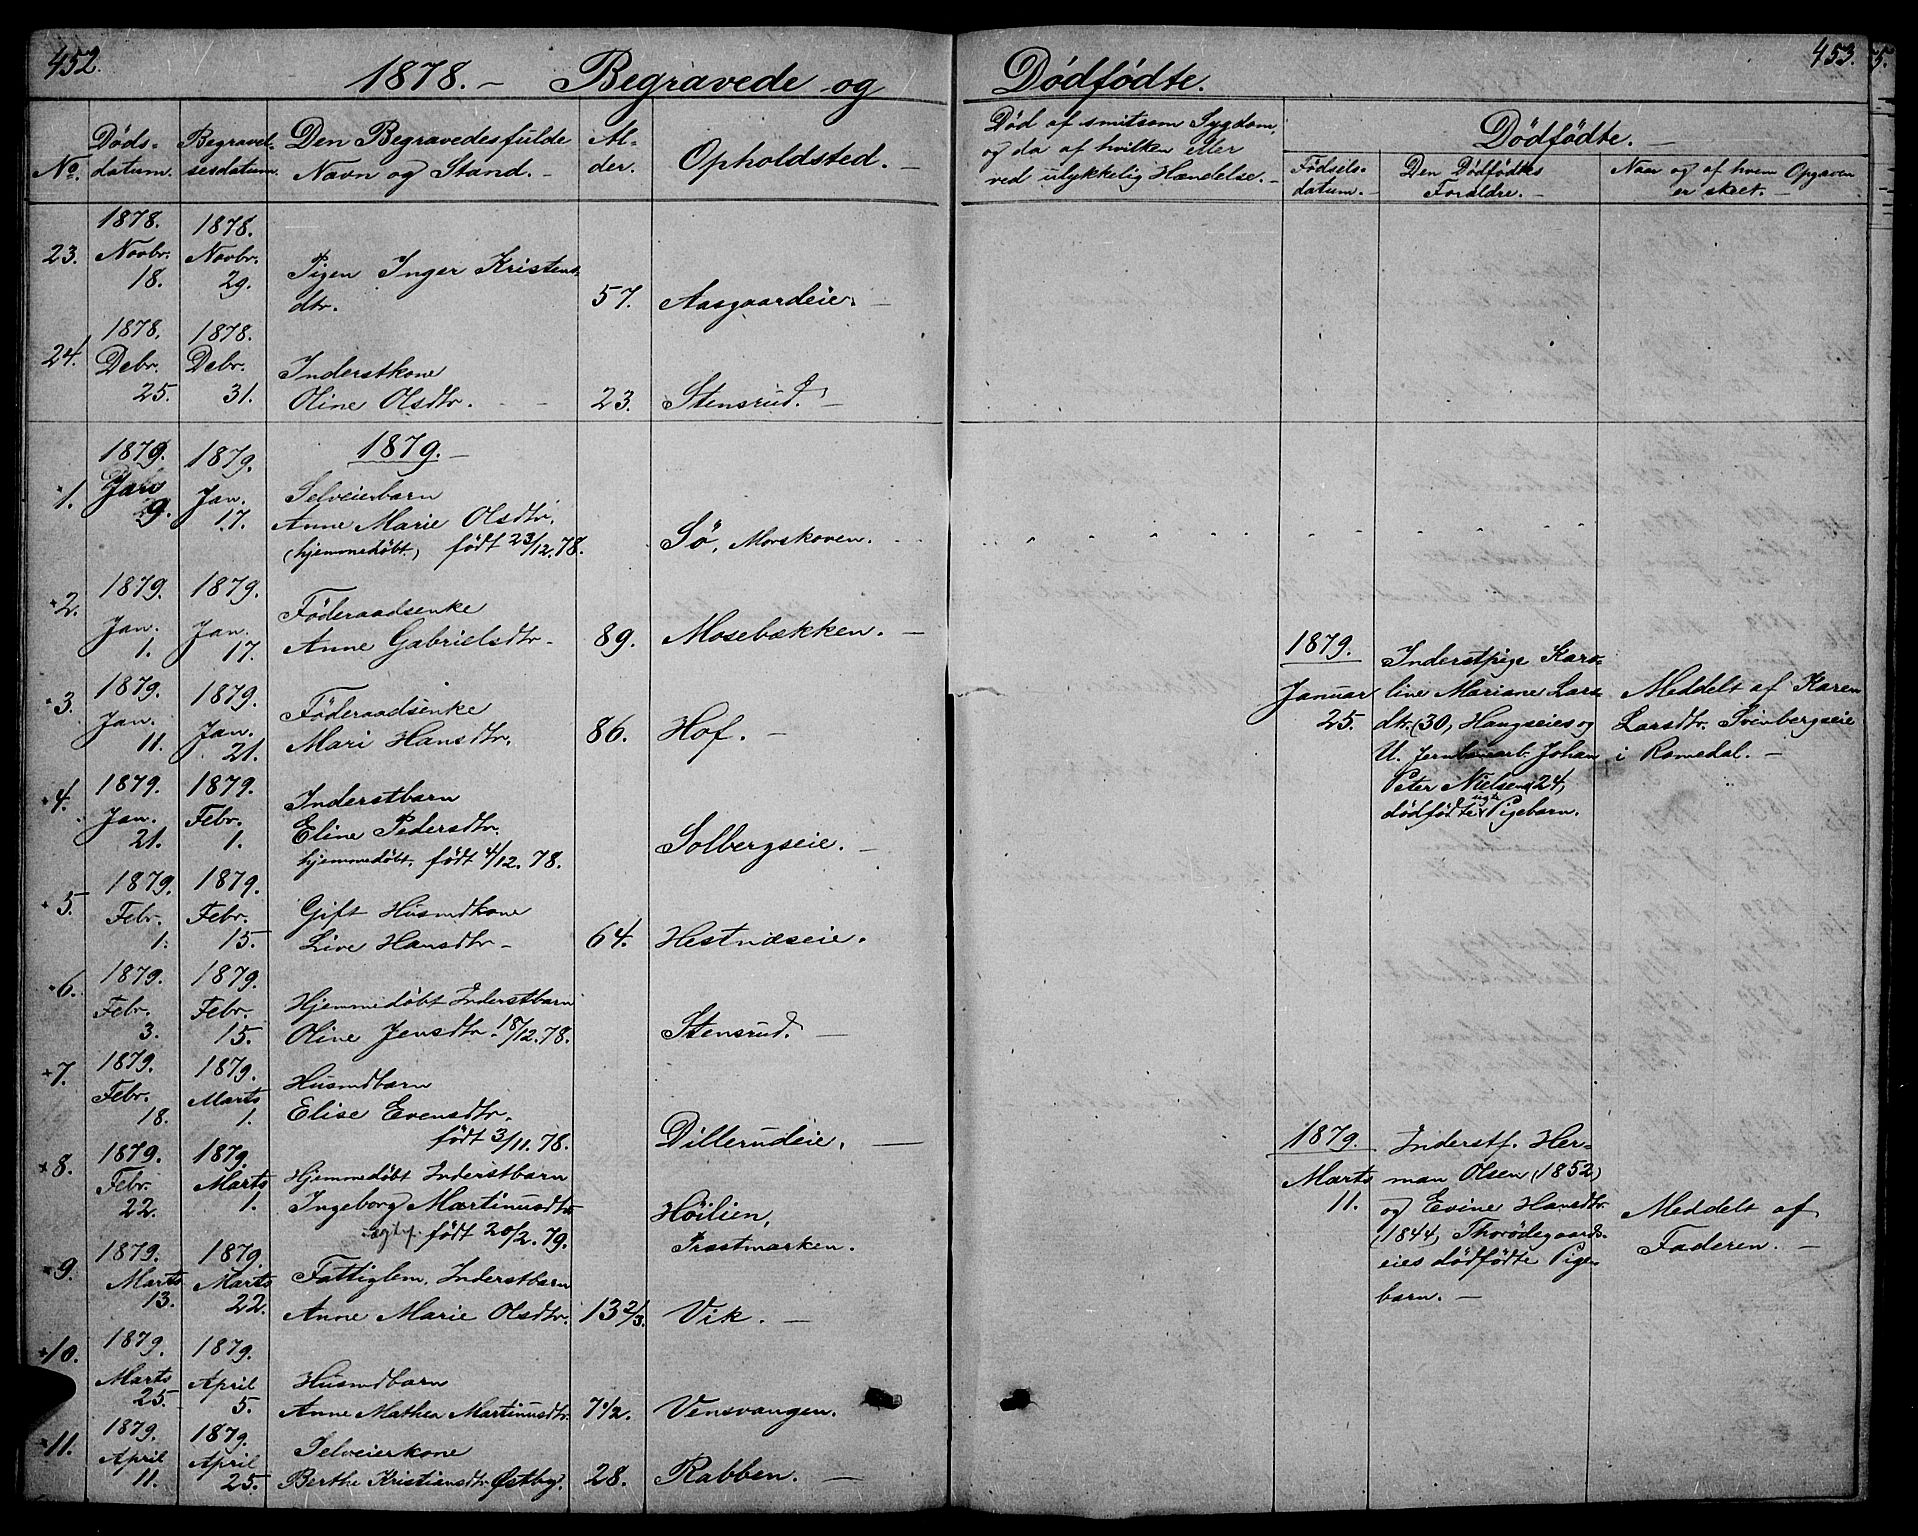 452.
1878. - Begravede og
Dødfødte.
453.
No.
Døds-
datum.
Begravel-
sesdatum.
Den Begravedes fulde
Navn og Stand. -
Al-
der.
Opholdsted. -
Død af smitsom Sygdom,
og da af hvilken eller
ved ulykkelig Hændelse. -
Dødfødte. -
Fødsels-
datum. -
Den Dødfødtes
Forældre. -
Naar og af hvem Opgaven
er skeet. -
23. 1878. Novbr. 18. 1878. Novbr. 29.
Pigen Inger Kristens-
dtr. 57. Aasgaardeie. -
24. 1878. Debr. 25. 1878. Debr. 31.
Inderstkone
Oline Olsdtr. - - 23. Stensrud. -
1879. -
1. 1879. Jan 9. 1879. Jan. 17.
Selveierbarn
Anne Marie Olsdtr.
(hjemmedøbt) født 23/12.78. Sö, Morskoven.
2. 1879. Jan. 1. 1879. Jan. 17.
Føderaadsenke
Anne Gabrielsdtr - 89. Mosebækken. -
3. 1879. Jan. 11. 1879. Jan. 21.
Føderaadsenke
Mari Hansdtr. 86. Hof. -
4. 1879. Jan. 21. 1879. Febr. 1.
Inderstbarn
Eline Pedersdtr.
hjemmedøbt, født 4/12.78. Solbergseie. -
5. 1879. Febr. 1. 1879. Febr. 15.
Gift Husmdkone
Live Hansdtr - 64. Hestnæseie.
6. 1879. Febr. 3. 1879. Febr. 15.
Hjemmedøbt Inderstbarn
Oline Jensdtr. 18/12.78. Stensrud. -
7. 1879. Febr. 18. 1879. Marts 1.
Husmdbarn
Elise Evensdtr.
født 3/11.78. Dillerudeie. -
8. 1879. Febr. 22. 1879. Marts 1.
Hjemmedøbt Inderstbarn
Ingeborg Martinusdtr
født 20/2.79. Høilien,
Præstmarken.
9. 1879. Marts 13. 1879. Marts 22.
Fattiglem, Inderstbarn
Anne Marie Olsdtr. 13 2/3. Vik. -
10. 1879. Marts 25. 1879. April 5.
Husmdbarn
Anne Mathea Martinusdtr. 7 1/2. Vensvangen.
11. 1879. April 11. 1879. April 25.
Selveierkone
Berthe Kristiansdtr. Østby. 28. Rabben. -
1879.
Januar
25.
Inderstpige Karo-
line Mariane Lars-
dtr. (30) Haugseies og
U. Jernbanearb. Johan
Peter Nielsen (24)
dødfødte ugte Pigebarn.
Meddelt af Karen
Larsdtr. Svinbergseie
i Romedal. -
1879.
Marts
11.
Inderstf. Her-
man Olsen (1852)
og Evine Hansdtr
(1844) Thorödegaards-
eies dødfødte Pige-
barn. -
Meddelt af
Faderen. -